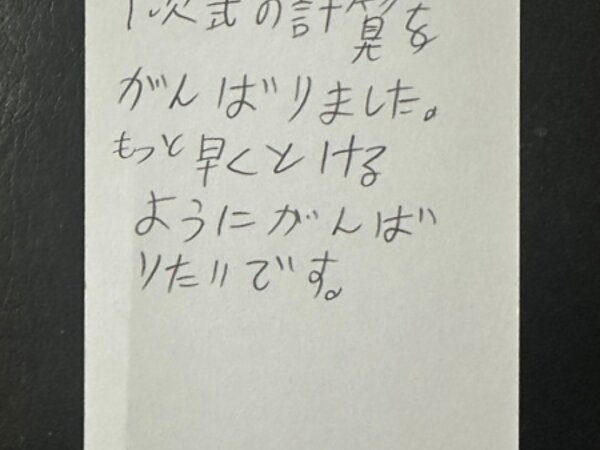 1次式の計算を
がんばりました。
もっと早くとける
ようにがんば
りたいです。